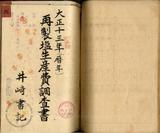 大正十三年(暦年)
再製塩生産費調査書
井崎書記